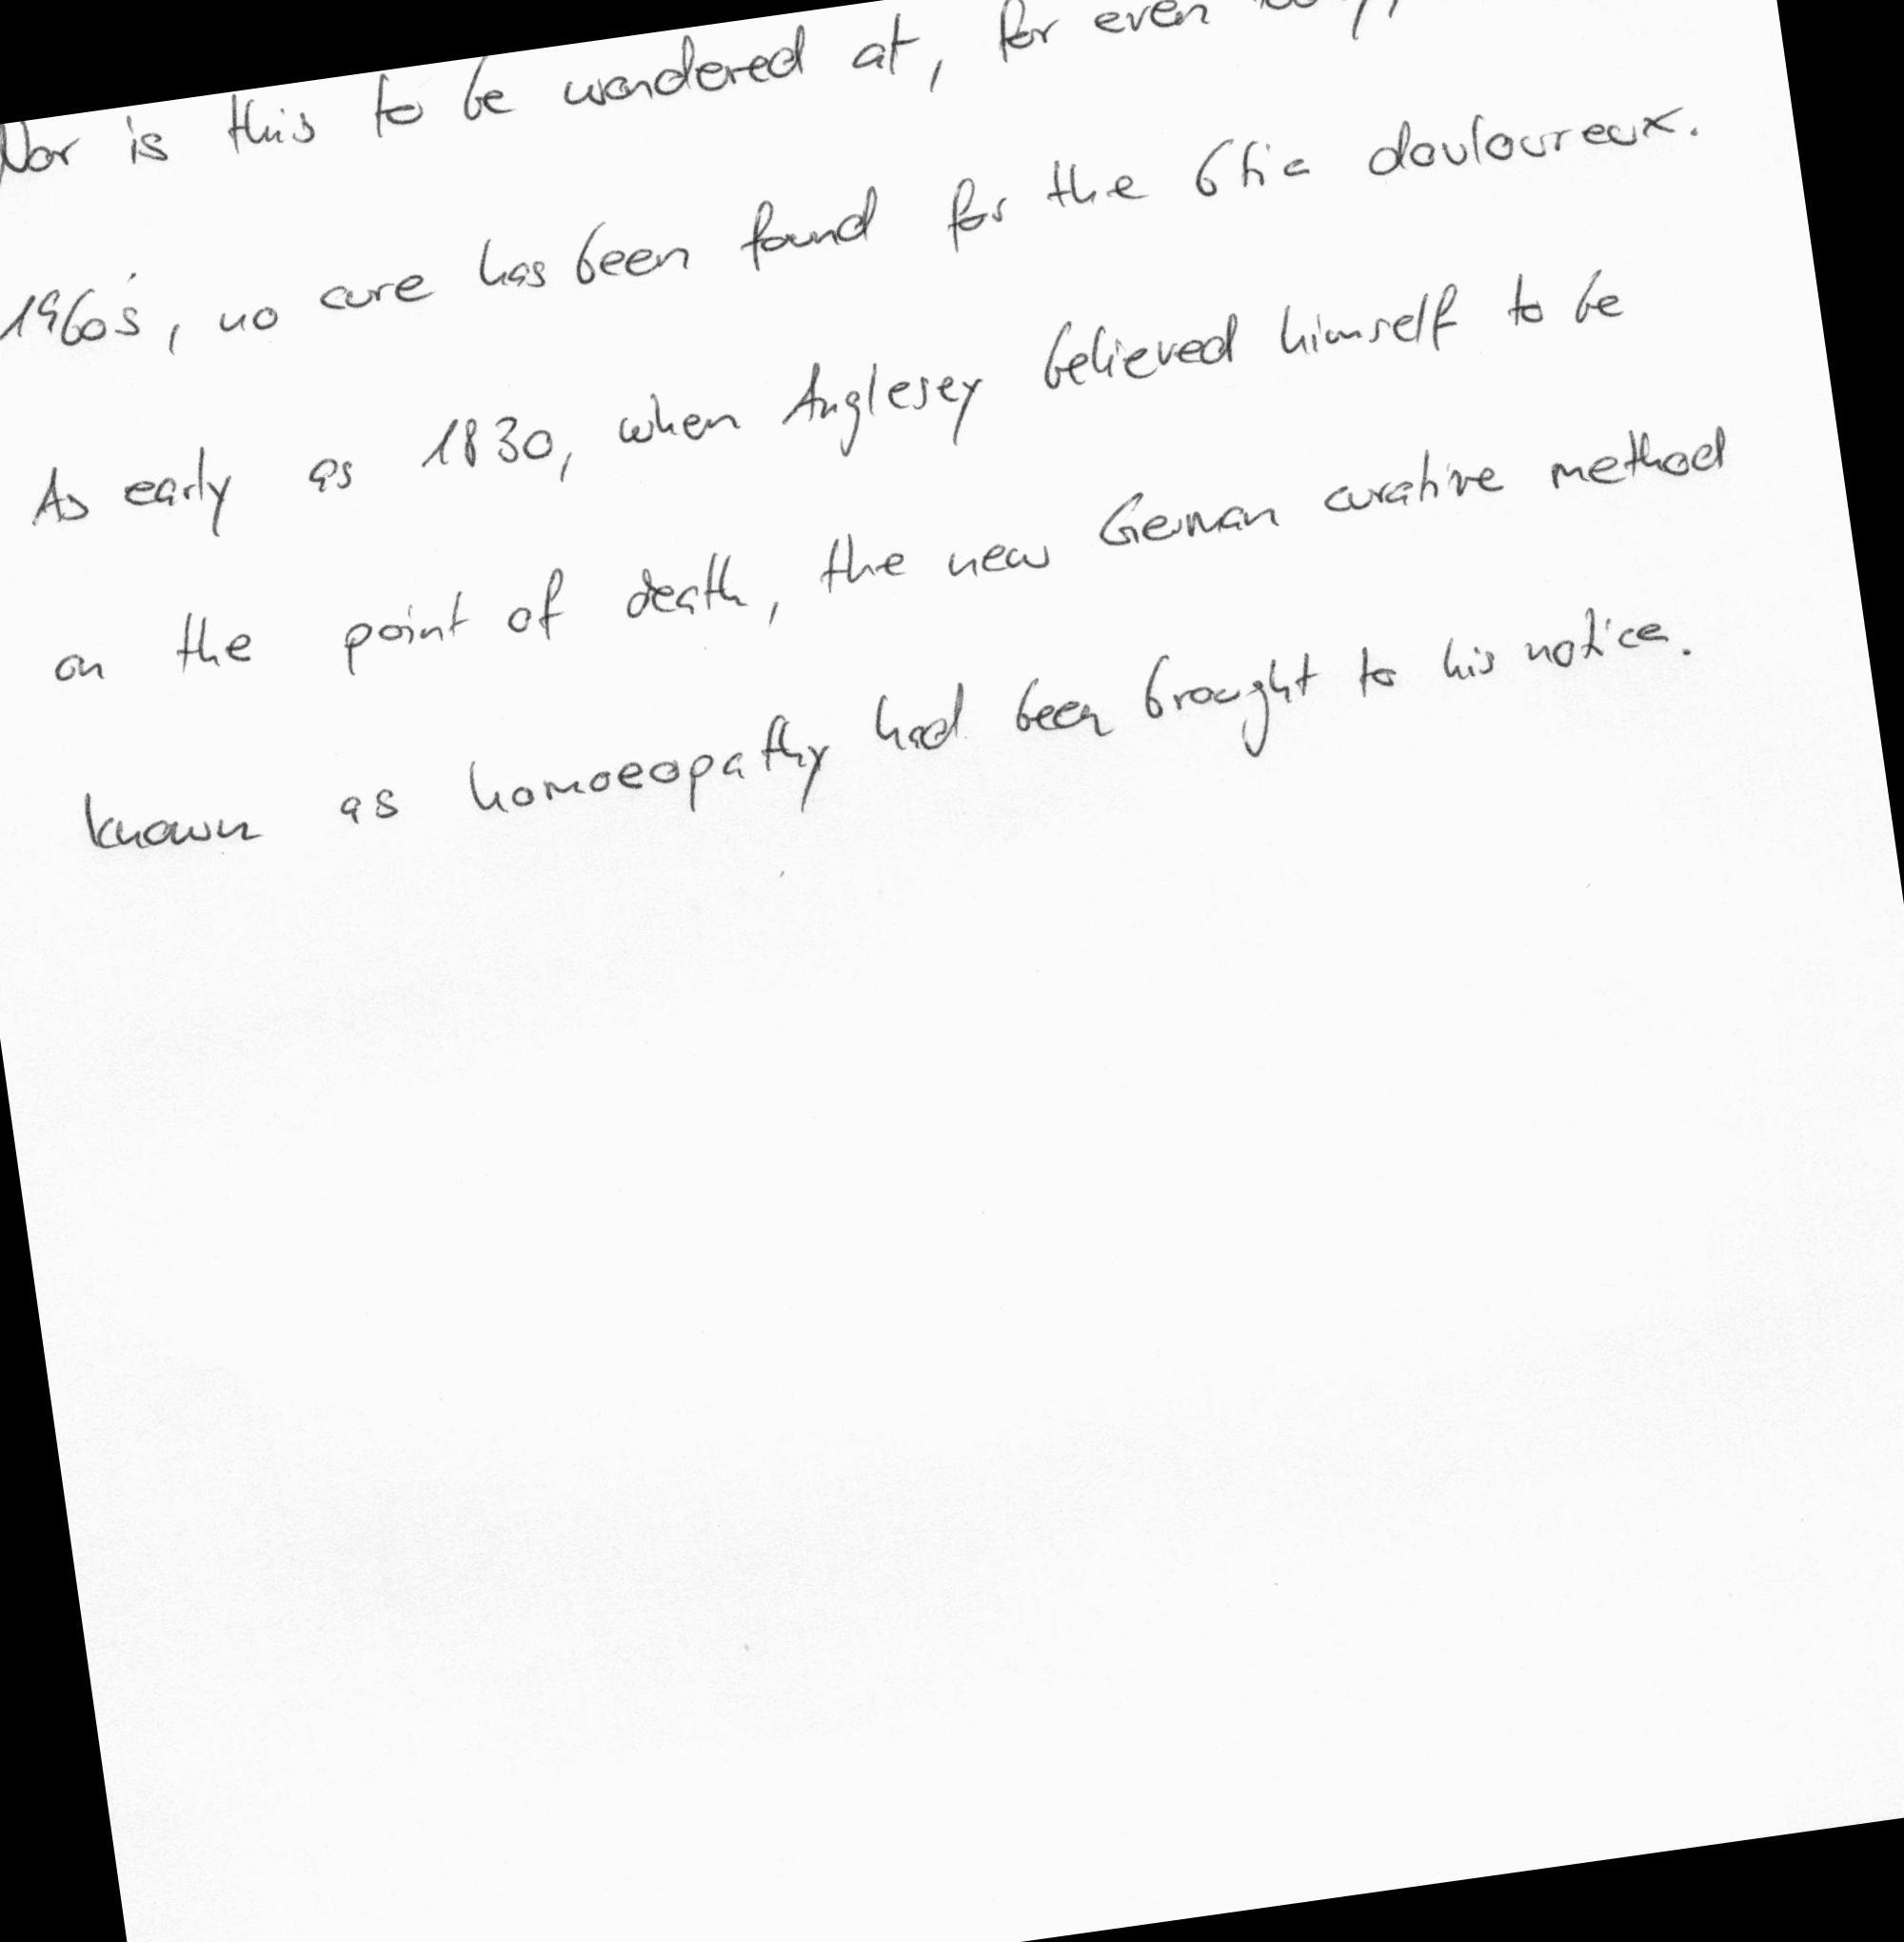 Nor is this to be wondered at, for even
1960's, no cure has been found for the 6tic douloureux.
As early as 1830, when Anglesey believed himself to be
on the point of death, the new German curative method
known as homoeopathy had been brought to his notice.